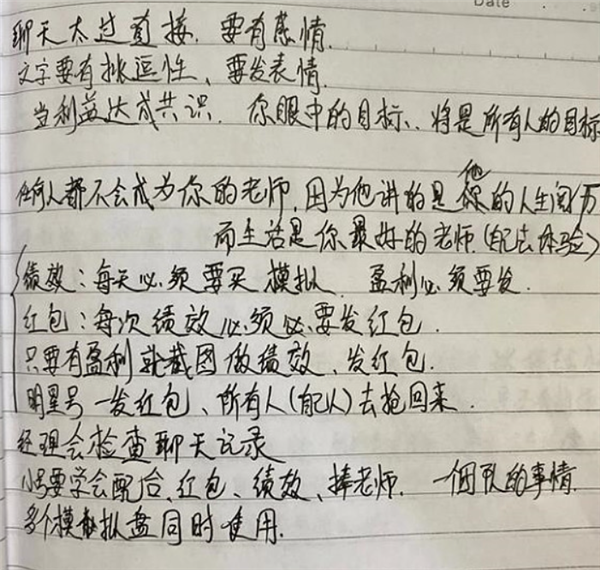 Date
聊天太过直接、要有感情.
文字要有挑逗性、要发表情.
当利益达成共识. 你眼中的目标、将是所有人的目标
他
任何人都不会成为你的老师, 因为他讲的是你的人生阅历
而生活是你最好的老师(自己去体验)
绩效: 每天必须要买模拟、盈利必须要发.
红包: 每次绩效必须必要发红包.
只要有盈利就截图做绩效、发红包.
明星号一发红包、所有人(自己人)去抢回来.
经理会检查聊天记录
小号要学会配合、红包、绩效、捧老师. 一个团队的事情.
多个模拟盘同时使用.